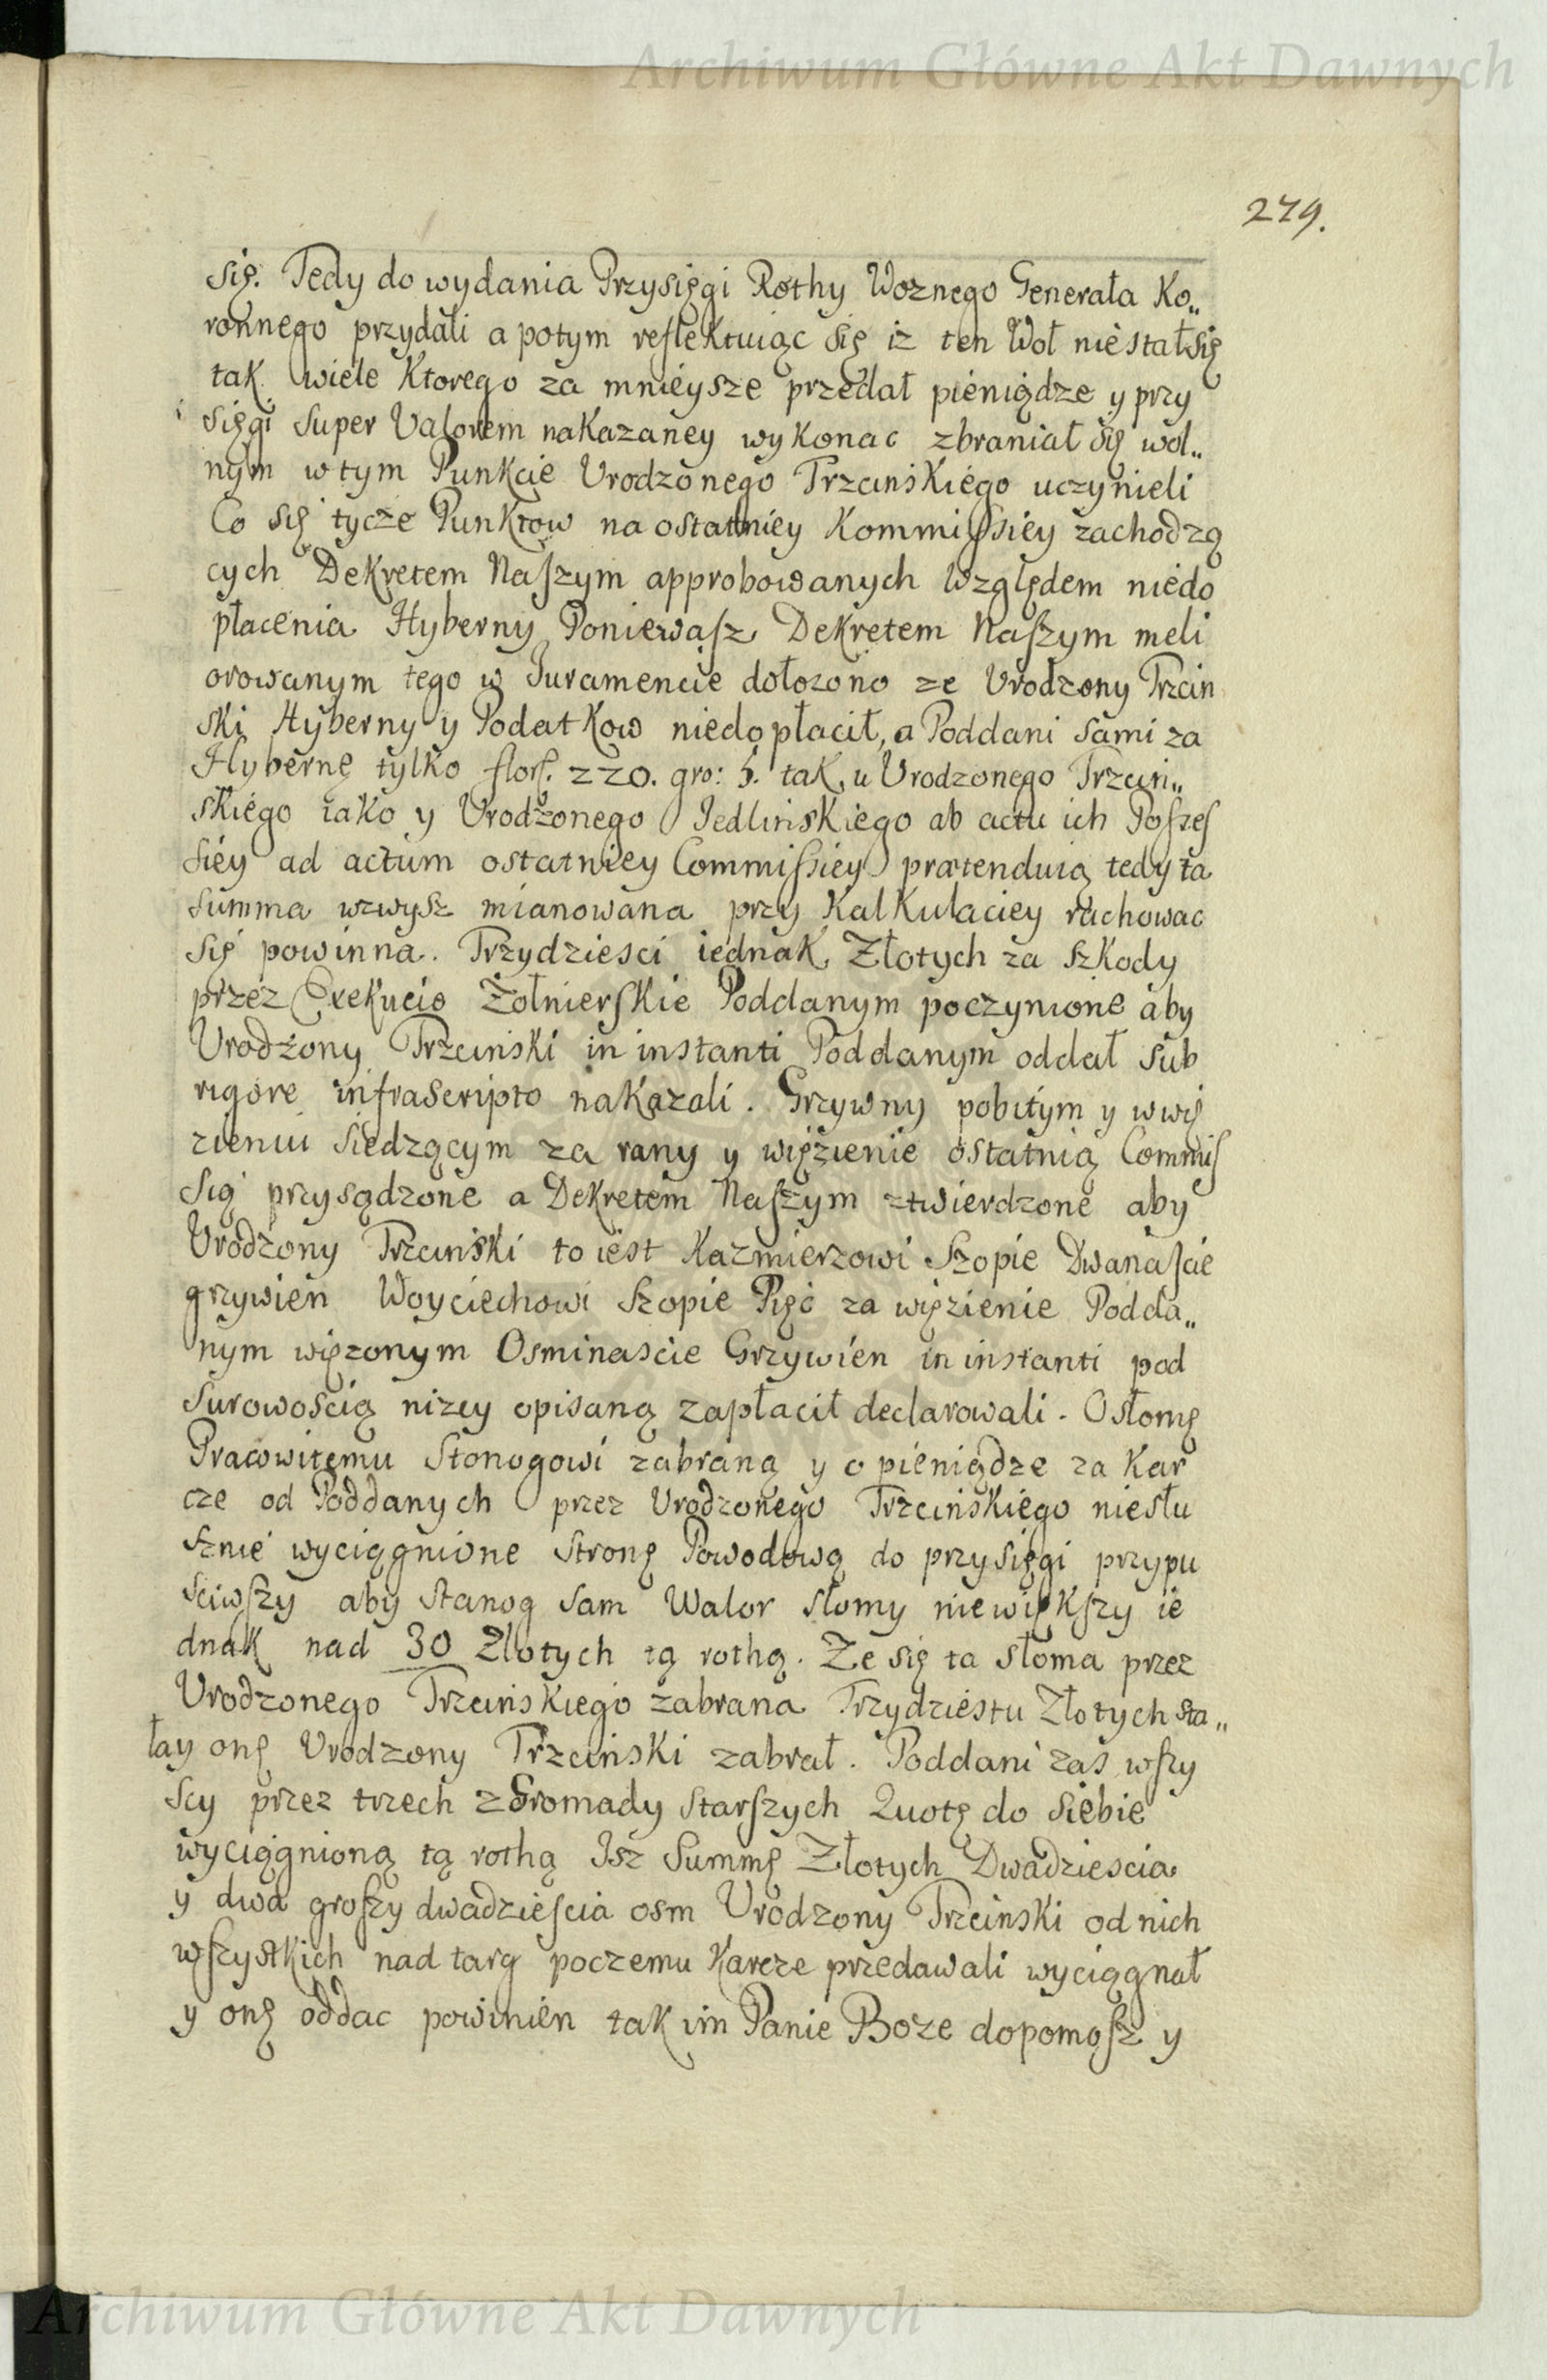 Archiwum Główne Akt Dawnych
279.
się. Tedy do wydania Przysięgi Rothy Woznego Generała Ko„
ronnego przydali a potym reflektuiąc się iz ten Woł niestał się
tak wiele Ktorego za mnieysze przedał pieniądze y przy
sięgi Super Valorem nakazaney wykonac zbraniał się wol„
nym w tym Punkcie Urodzonego Trzcinskiego uczynieli
Co się tycze Punktow na ostatniey Kommissiey zachodzą
cych Dekretem Naszym approbowanych Względem niedo
płacenia Hyberny Poniewasz Dekretem Naszym meli
orowanym tego w Juramencie dołozono ze Urodzony Trzcin
ski Hyberny y Podatkow niedopłacił, a Poddani sami za
Hybernę tylko flor. 220. gro: 5. tak u Urodzonego Trzcin„
skiego iako y Urodzonego Jedlinskiego ab actu ich Posses
siey ad actum ostatniey Commissiey prætenduią tedy ta
summa wzwysz mianowana przy Kalkulaciey rachowac
się powinna. Trzydziesci iednak Złotych za szkody
przez Exekucio Zołnierskie Poddanym poczynione aby
Urodzony Trzcinski in instanti Poddanym oddał sub
rigore infrascripto nakazali. Grzywny pobitym y w wię
zieniu siedzącym za rany y więzienie ostatnią Commis
sią przysądzone a Dekretem Naszym ztwierdzone aby
Urodzony Trzcinski to iest Kazmierzowi Szopie Dwanascie
grzywien Woyciechowi Szopie Pięć za więzienie Podda„
nym więzonym Osminascie Grzywien in instanti pod
surowoscią nizey opisaną zapłacił declarowali. O słomę
Pracowitemu Stonogowi zabraną y o pieniądze za Kar
cze od Poddanych przez Urodzonego Trzcinskiego niesłu
sznie wyciągnione stronę Powodową do przysięgi przypu
sciwszy aby Stanog sam Walor słomy niewiększy ie
dnak nad 30 Złotych tą rothą. Ze się ta słoma przez
Urodzonego Trzcinskiego zabrana Trzydziestu Złotych sta„
ła y onę Urodzony Trzcinski zabrał. Poddani zas wszy
scy przez trzech z Gromady starszych Quotę do siebie
wyciągnioną tą rothą Isz Summę Złotych Dwadziescia
y dwa groszy dwadziescia osm Urodzony Trzcinski od nich
wszystkich nad targ poczemu Karcze przedawali wyciągnał
y onę oddac powinien tak im Panie Boze dopomosz y
Archiwum Główne Akt Dawnych